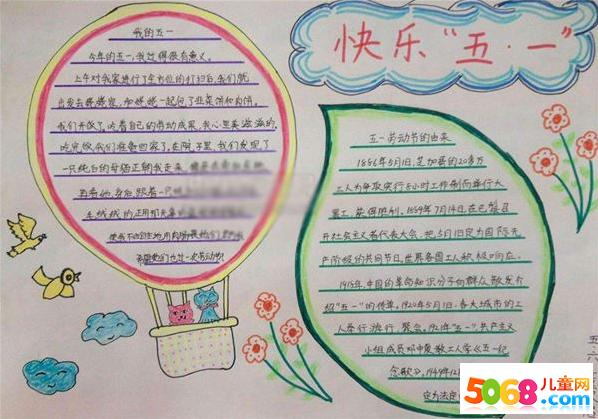 快乐“五·一”
我的五一
今年的五一,我过得很有意义。
上午对我家进行了全方位的打扫后,我们就
出发去姥姥家,和姥姥一起包了韭菜馅和肉馅。
我们开饭了,吃着自己的劳动成果,我心里美滋滋的。
吃完饭我们准备回家了,在院子里,我们发现了
一只纯白的母猫正朝我走来
再看她身后跟着一只
五一劳动节的由来
1886年5月1日,芝加哥的20多万
工人为争取实行8小时工作制而举行大
罢工,获得胜利。1889年7月14日,在巴黎召
开社会主义者代表大会,把5月1日定为国际无
产阶级的共同节日,世界各国工人积极响应。
1918年,中国的革命知识分子向群众散发介
绍“五一”的传单。1920年5月1日,各大城市的工
人举行游行、聚会。1921年“五一”,共产主义
小组成员邓中夏教工人学《五一纪
念歌》。1949年12月
定为法定
五
六
5068儿童网
www.5068.com